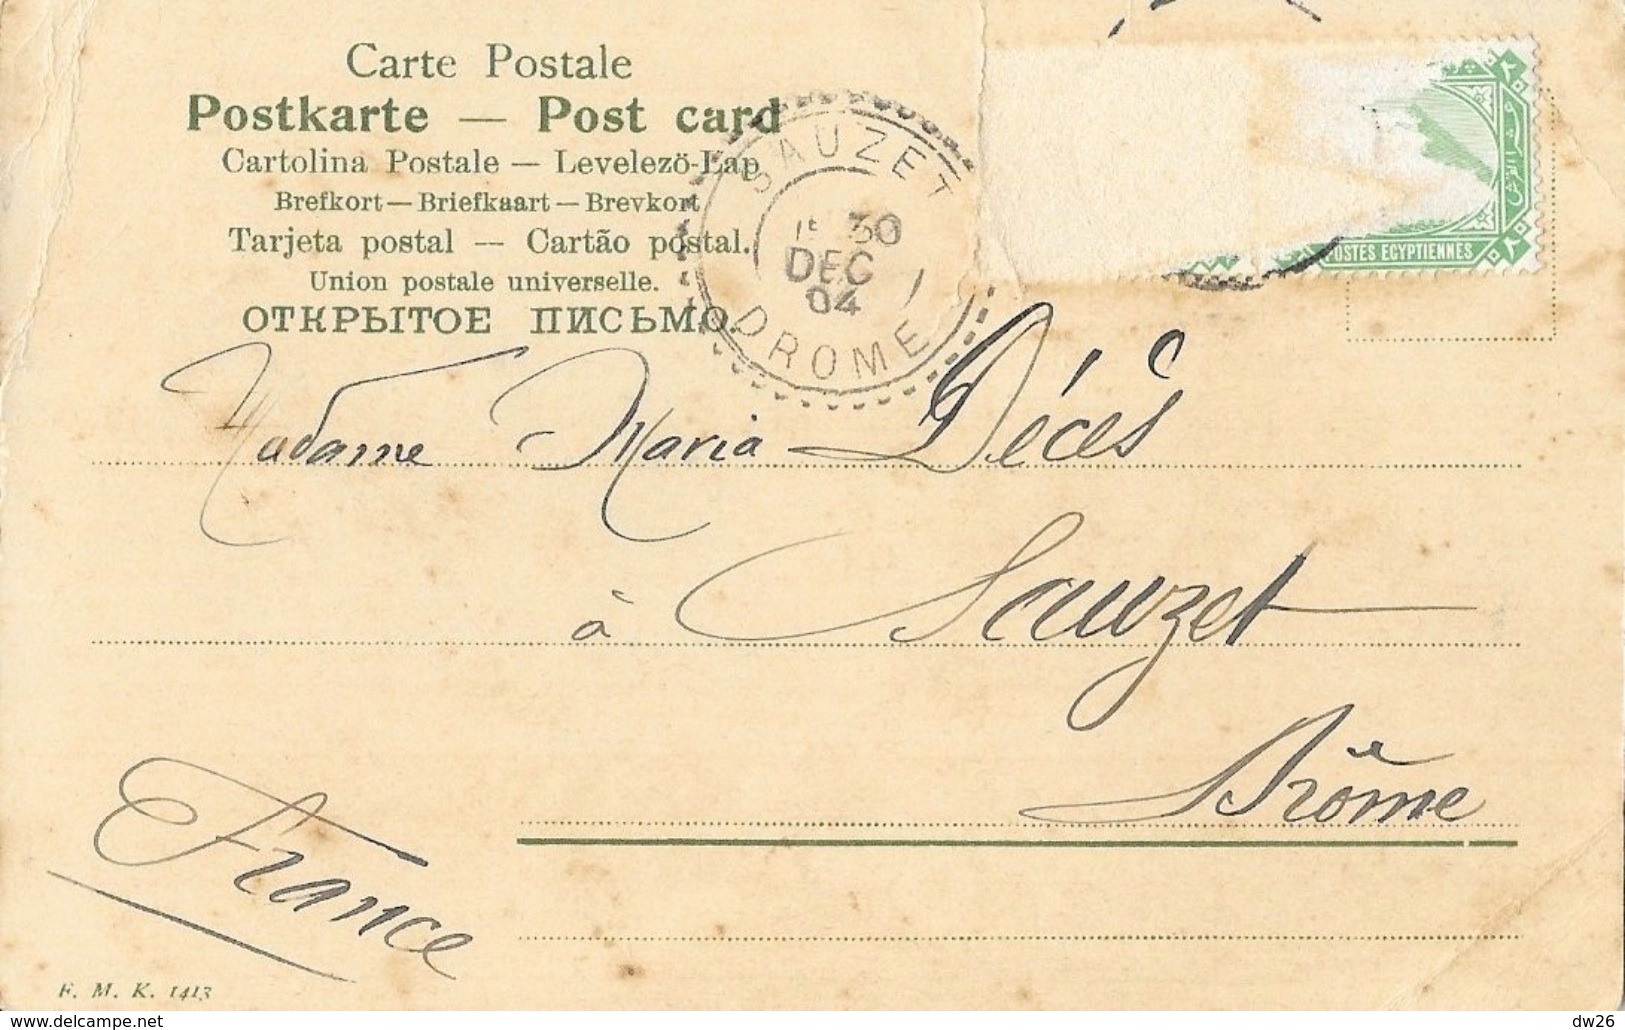 Carte Postale
Postkarte — Post card
Cartolina Postale — Levelező-Lap
Brefkort — Briefkaart — Brevkort
Tarjeta postal — Cartão postal.
Union postale universelle.
ОТКРЫТОЕ ПИСЬМО.
SAUZET
30
DEC
04
DROME
POSTES EGYPTIENNES
Madame Maria Décés
à Sauzet
Drôme
France
F. M. K. 1413
www.delcampe.net
dw26